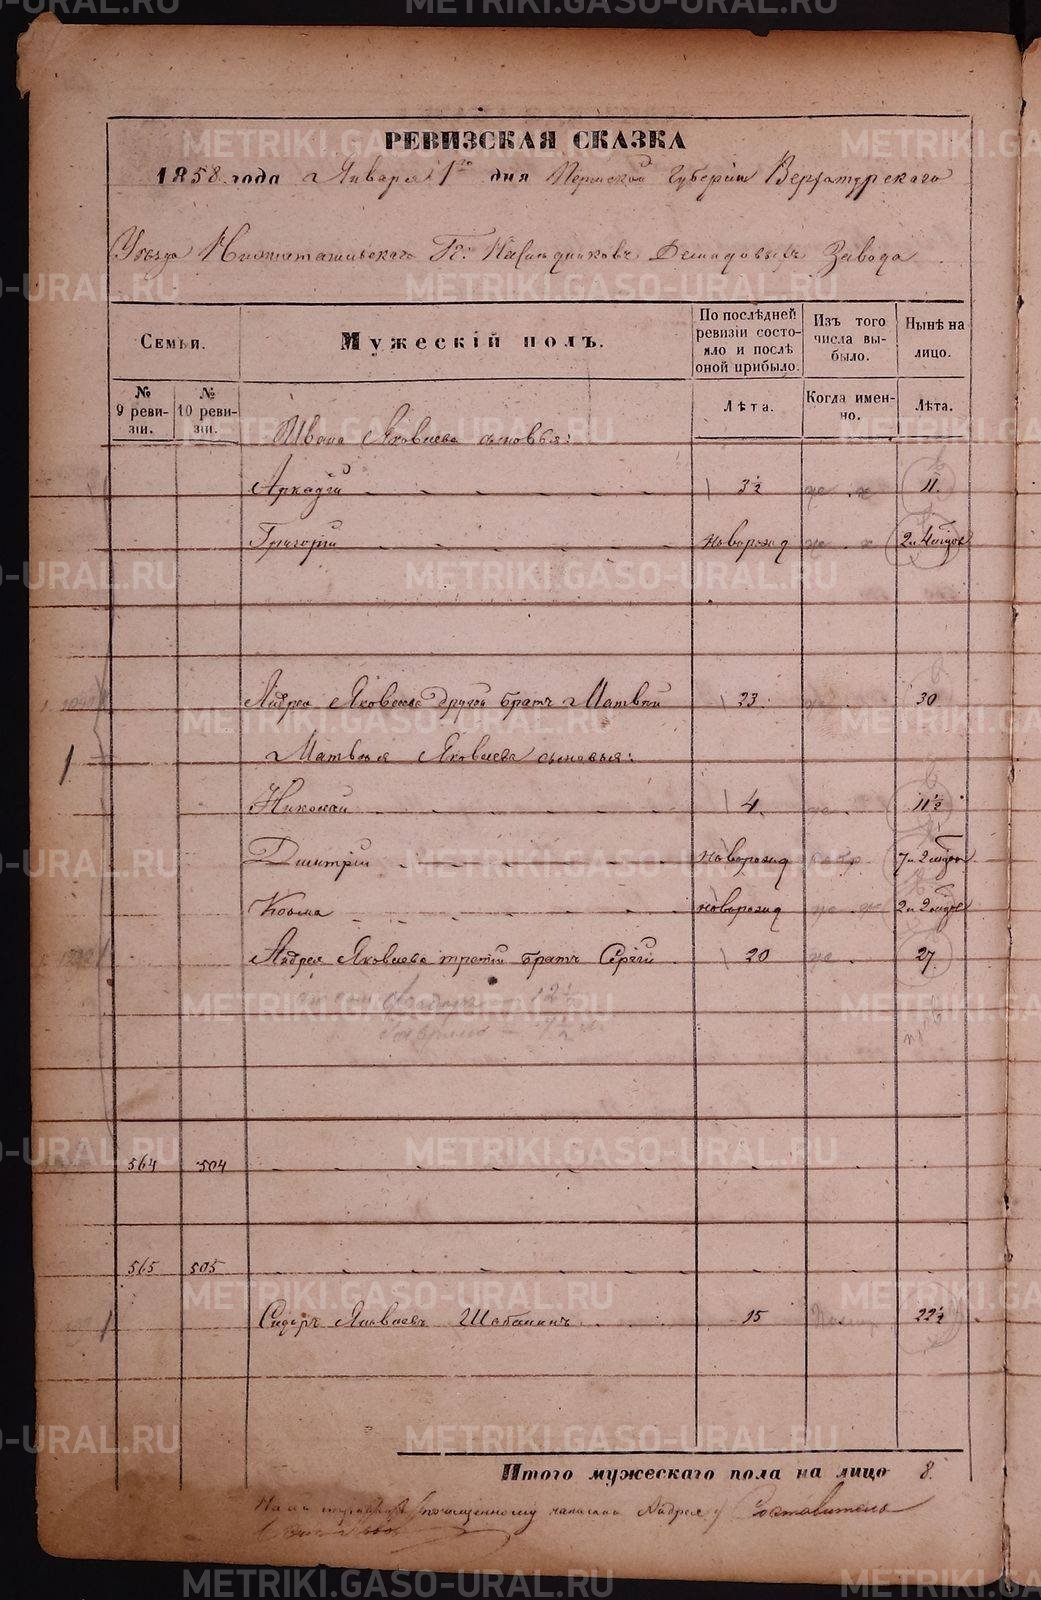 METRIKI.GASO-URAL.RU
РЕВИЗСКАЯ СКАЗКА
1858 года Января 1го дня Пермской Губернiи Верхотурскаго
Уѣзда Нижнетагильскаго Гг: Наслѣдниковъ Демидовыхъ Завода
Семьи.
Мужескiй полъ.
По послѣдней ревизiи состояло и послѣ оной прибыло.
Изъ того числа выбыло.
Нынѣ на лицо.
№ 9 ревизiи.
№ 10 ревизiи.
Лѣта.
Когда именно.
Лѣта.
Ивана Яковлева сыновья:
Аркадiй 3½ 11.
Григорiй новорожд 2 и 4 мѣсов
Андрея Яковлева другой братъ Матвѣй 23. 30
1
Матвѣя Яковлева сыновья:
Николай 4. 11½
Дмитрiй новорожд 7 и 2 мѣсов
Козьма новорожд 2 и 2 мѣсов
Андрея Яковлева третiй братъ Сергѣй 20 27.
564 504
565 505
Сидоръ Яковлевъ Шабанинъ 15 22½
Итого мужескаго пола на лицо 8.
написан Андрея Составитель